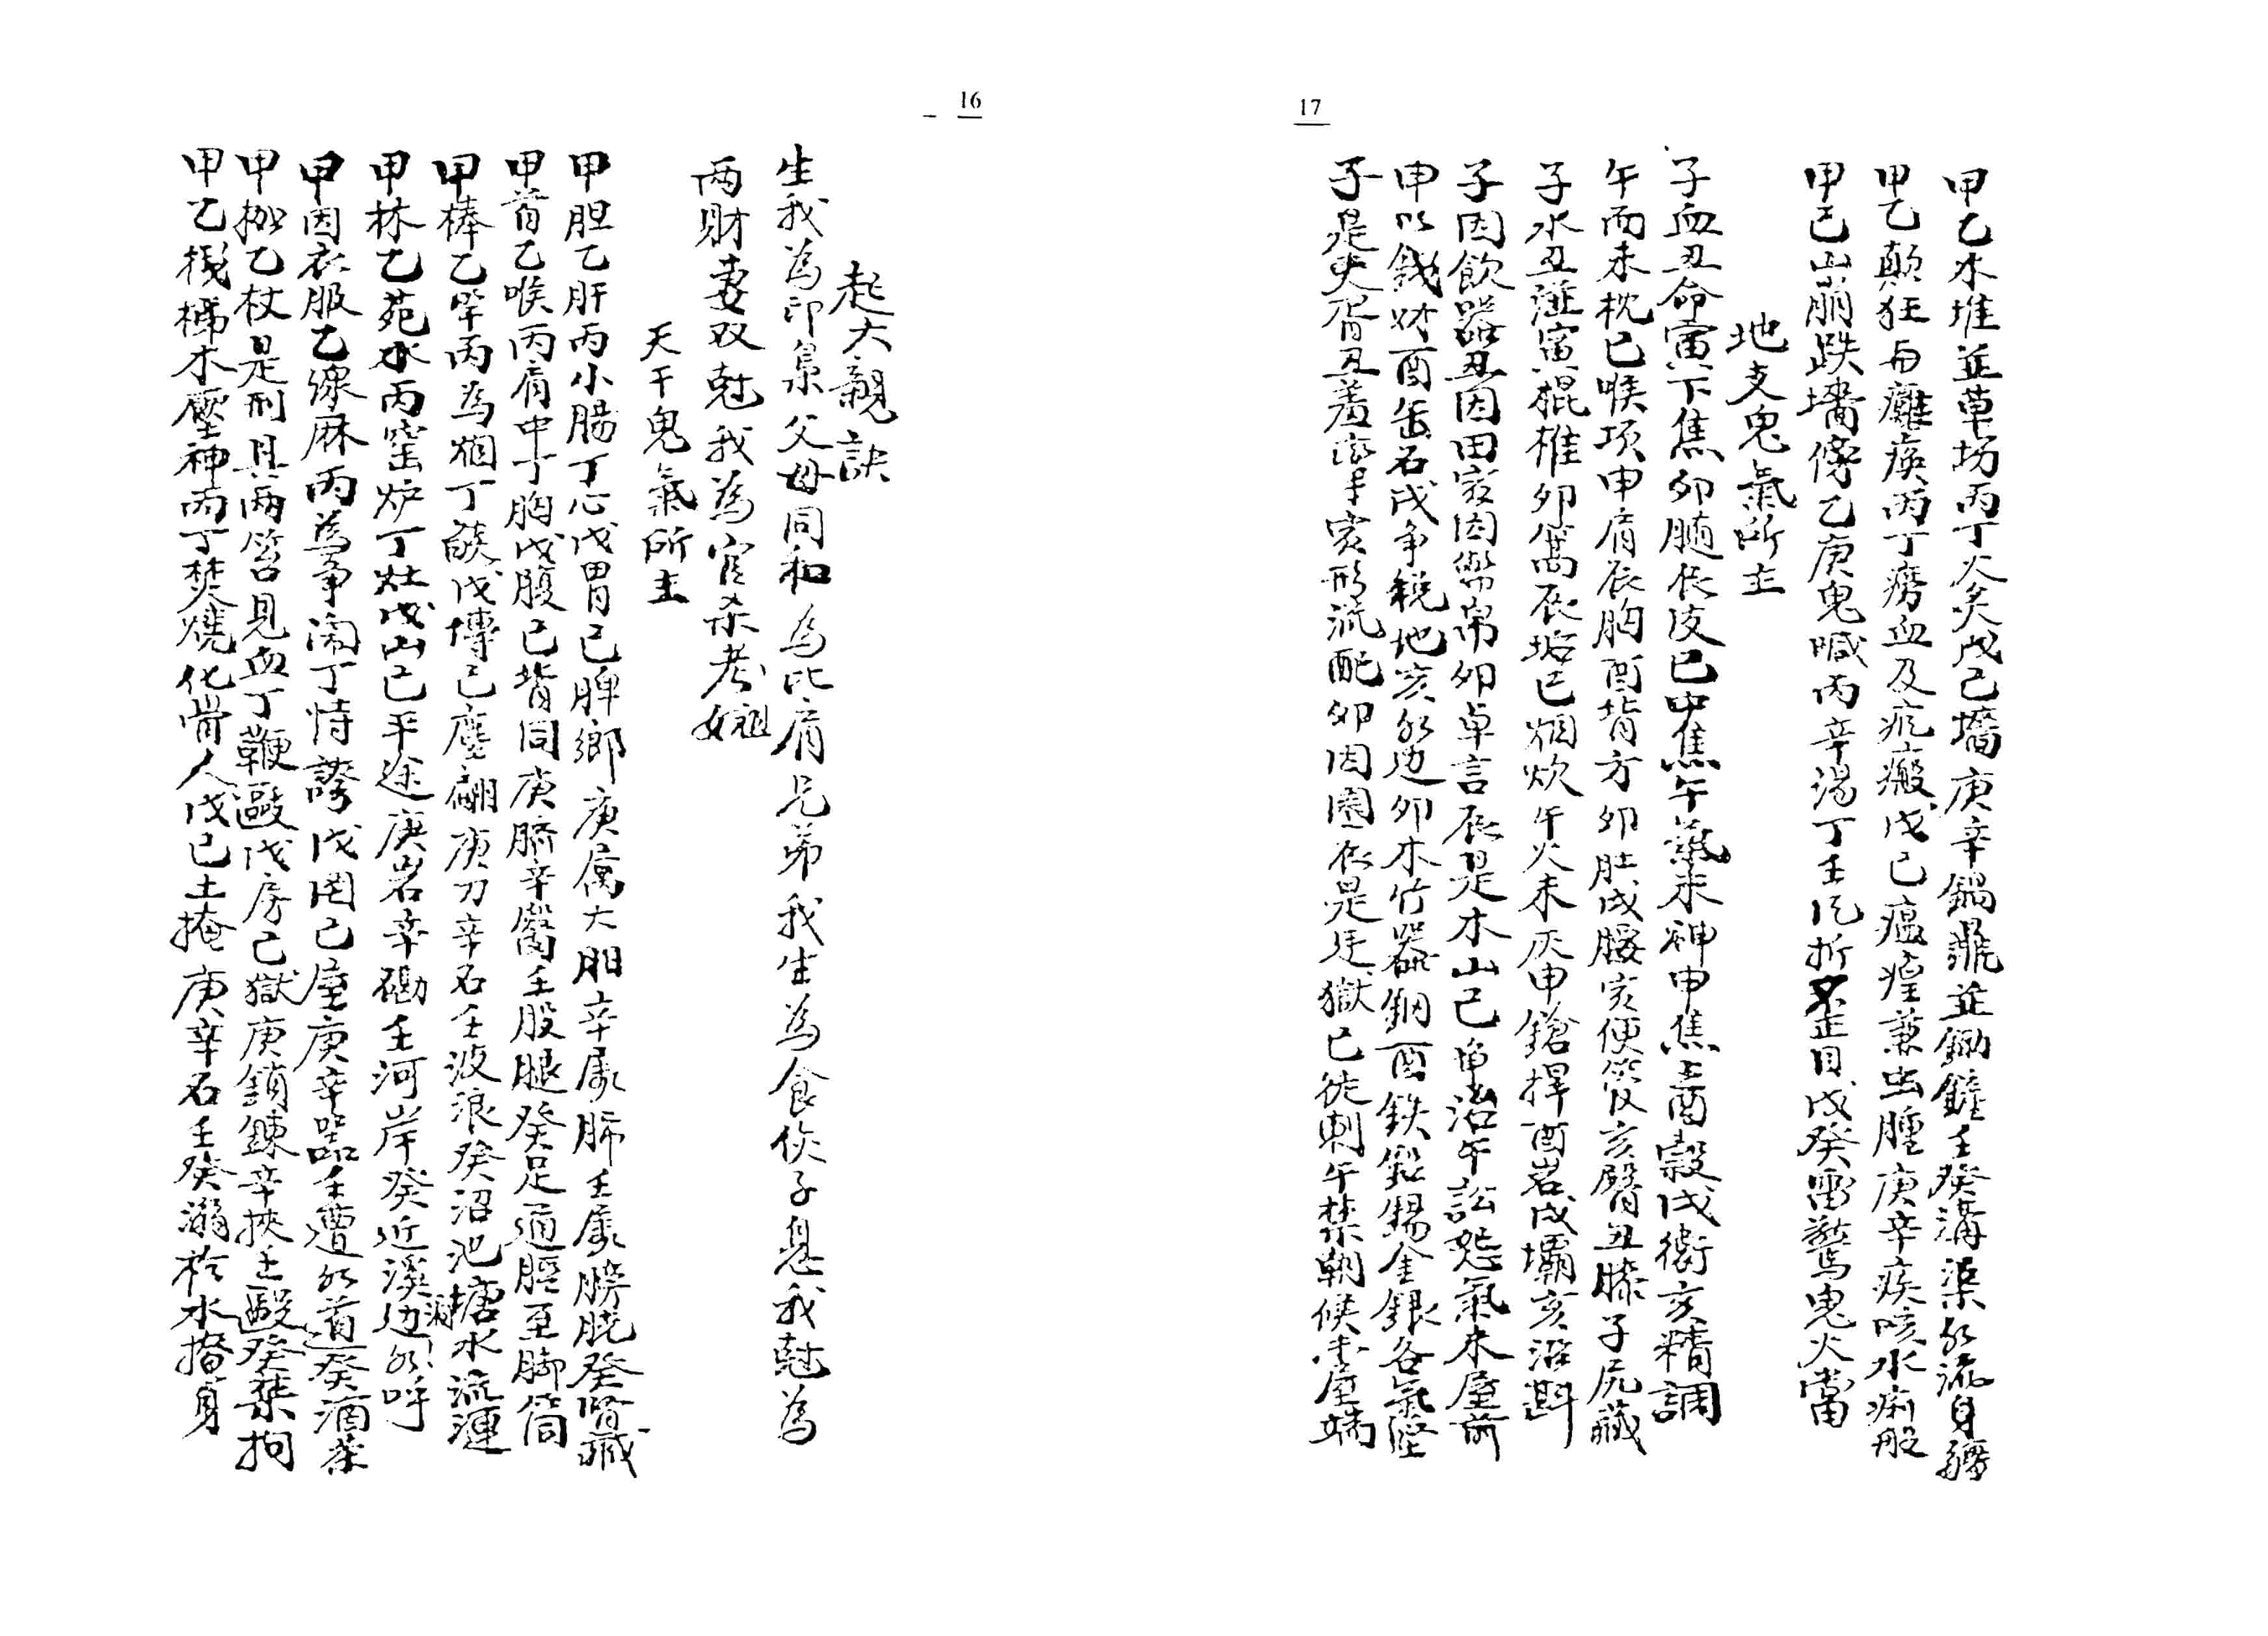 16
起六親訣
生我為印梟父母同和為比肩兄弟我生為食侯子息我尅為
两財妻双尅我為官杀考妣祖
天干鬼氣所主
甲胆乙肝丙小腸丁心戊胃己脾鄉庚属大腸辛属肺壬属膀胱癸腎藏
甲首乙喉丙肩中丁胸戊腹己背同庚臍辛鬱壬股腿癸足通脛至脚筒
甲棒乙竿丙為烟丁燄戊磚己塵翩庚刀辛石壬波浪癸沼池塘水流漣
甲林乙苑水丙窑炉丁灶戊山己平途庚岩辛磡壬河岸癸近溪边水呼
甲因衣服乙線麻丙為爭闹丁恃誇戊因己屋庚辛器壬遭水道癸酒茶
甲枷乙杖是刑具两笞見血丁鞭毆戊房己獄庚鎖鍊辛挾壬毆癸禁拘
甲乙機梯木壓神丙丁焚燒化骨人戊己土掩庚辛石壬癸溺於水撘身
17
甲乙木堆並草场丙丁火炙戊己墻庚辛鍋鼎並鋤鏟壬癸溝渠水流身
甲乙顛狂与癱瘓丙丁痨血及疤瘢戊己瘟瘴兼虫腫庚辛疾咳水痢般
甲己山崩跌墻傍乙庚鬼喊丙辛湯丁壬折歪目戊癸雷驚鬼火當
地支鬼氣所主
子血丑命寅下焦卯髄辰皮巳中焦午氣未神申焦上酉穀戌衛亥精調
午面未枕巳喉项申肩辰胸酉背方卯肚戌腰亥便亥臂丑膝子尻藏
子水丑寅棍椎卯篙辰巳烟炊午火未灰申鎗捍酉岩戌壩亥沼
子因飲器丑因田寅因幣帛卯卓言辰是木山巳午訟怨氣未屋前
申以錢财酉缶石戌争税地亥水边卯木竹器銅酉鉄鉛錫金銀各氣
子是丑羞寅形流配卯因園辰是獄巳徒刺午禁朝候未屋端